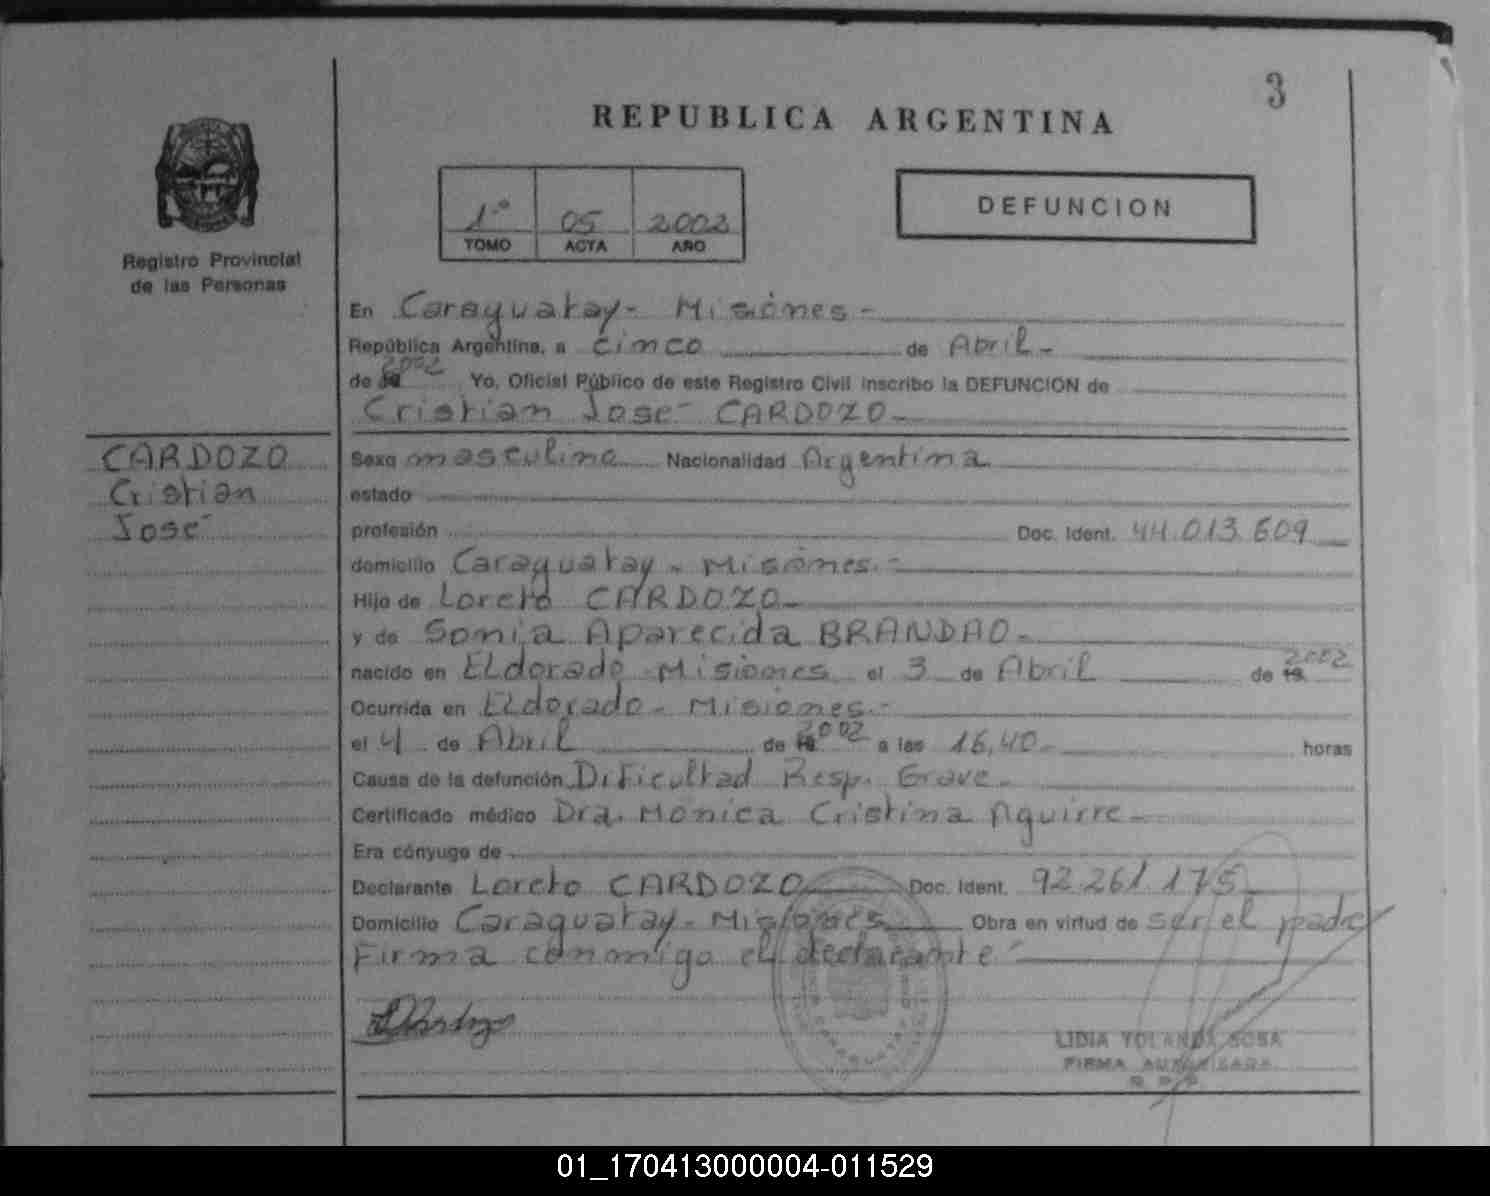 3
REPUBLICA ARGENTINA
1º 05 2002
TOMO ACTA AÑO
DEFUNCION
Registro Provincial
de las Personas
En Caraguatay - Misiones -
República Argentina, a cinco de Abril -
de 19 2002 Yo, Oficial Público de este Registro Civil inscribo la DEFUNCION de
Cristian José CARDOZO -
CARDOZO
Cristian
José
Sexo masculino Nacionalidad Argentina
estado
profesión Doc. Ident. 44.013.609
domicilio Caraguatay - Misiones. -
Hijo de Loreto CARDOZO -
y de Sonia Aparecida BRANDAO -
nacido en Eldorado - Misiones el 3 de Abril de 19 2002
Ocurrida en Eldorado - Misiones. -
el 4 de Abril de 19 2002 a las 16,40 - horas
Causa de la defunción Dificultad Resp. Grave -
Certificado médico Dra. Mónica Cristina Aguirre -
Era cónyuge de
Declarante Loreto CARDOZO Doc. Ident. 92.261.175
Domicilio Caraguatay - Misiones Obra en virtud de ser el padre
Firma conmigo el declarante -
LIDIA YOLANDA SOSA
FIRMA AUTORIZADA
R. P. P.
01_170413000004-011529